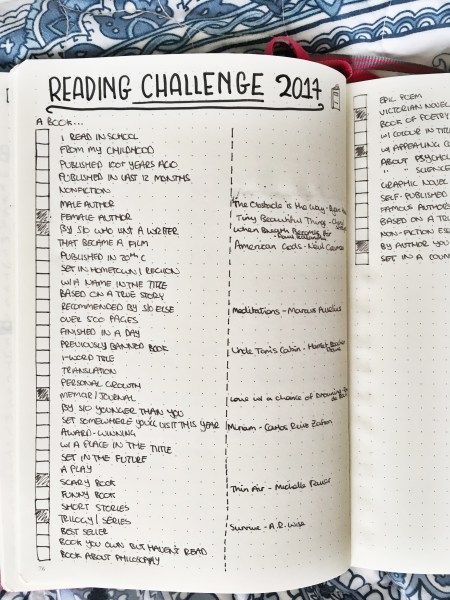 READING CHALLENGE 2017
A BOOK...
I READ IN SCHOOL
FROM MY CHILDHOOD
PUBLISHED 100+ YEARS AGO
PUBLISHED IN LAST 12 MONTHS
NONFICTION
MALE AUTHOR The Obstacle is the Way -
FEMALE AUTHOR Tiny Beautiful Thing -
BY S/O WHO ISN'T A WRITER When Breath Becomes Air - Paul Kalanithi
THAT BECAME A FILM American Gods - Neil
PUBLISHED IN 20TH C
SET IN HOMETOWN / REGION
W/ A NAME IN THE TITLE
BASED ON A TRUE STORY
RECOMMENDED BY S/O ELSE meditations - Marcus Aurelius
OVER 500 PAGES
FINISHED IN A DAY
PREVIOUSLY BANNED BOOK Uncle Tom's Cabin - Harriet Beecher
1-WORD TITLE
TRANSLATION
PERSONAL GROWTH
MEMOIR / JOURNAL Love w/ a chance of Drowning -
BY S/O YOUNGER THAN YOU
SET SOMEWHERE YOU'LL VISIT THIS YEAR Marina - Carlos Ruiz Zafon
AWARD-WINNING
W/ A PLACE IN THE TITLE
SET IN THE FUTURE
A PLAY
SCARY BOOK Thin Air - Michelle Paver
FUNNY BOOK
SHORT STORIES
TRILOGY / SERIES Survive - A.R. Wise
BEST SELLER
BOOK YOU OWN BUT HAVEN'T READ
BOOK ABOUT PHILOSOPHY
76
EPIC POEM
VICTORIAN NOVEL
BOOK OF POETRY
W/ COLOUR IN TITLE
W/ APPEALING CO
ABOUT PSYCHOL
" " SCIENCE
GRAPHIC NOVEL
SELF-PUBLISHED
FAMOUS AUTHOR
BASED ON A TRU
NON-FICTION ESS
BY AUTHOR YOU
SET IN A COUN